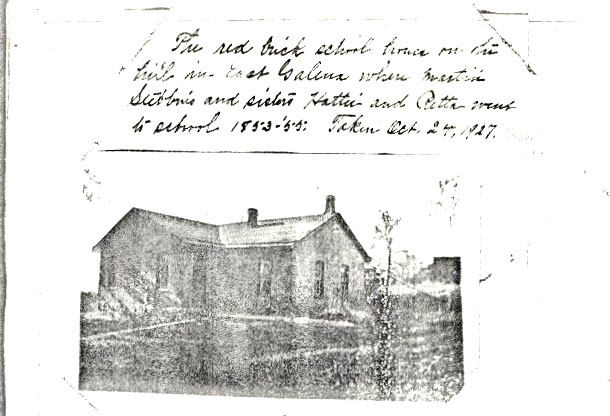 The red brick school house on the
hill in East Galena where Martin
Stebbins and sisters Hattie and Retta went
to school 1853-'55. Taken Oct. 24, 1927.